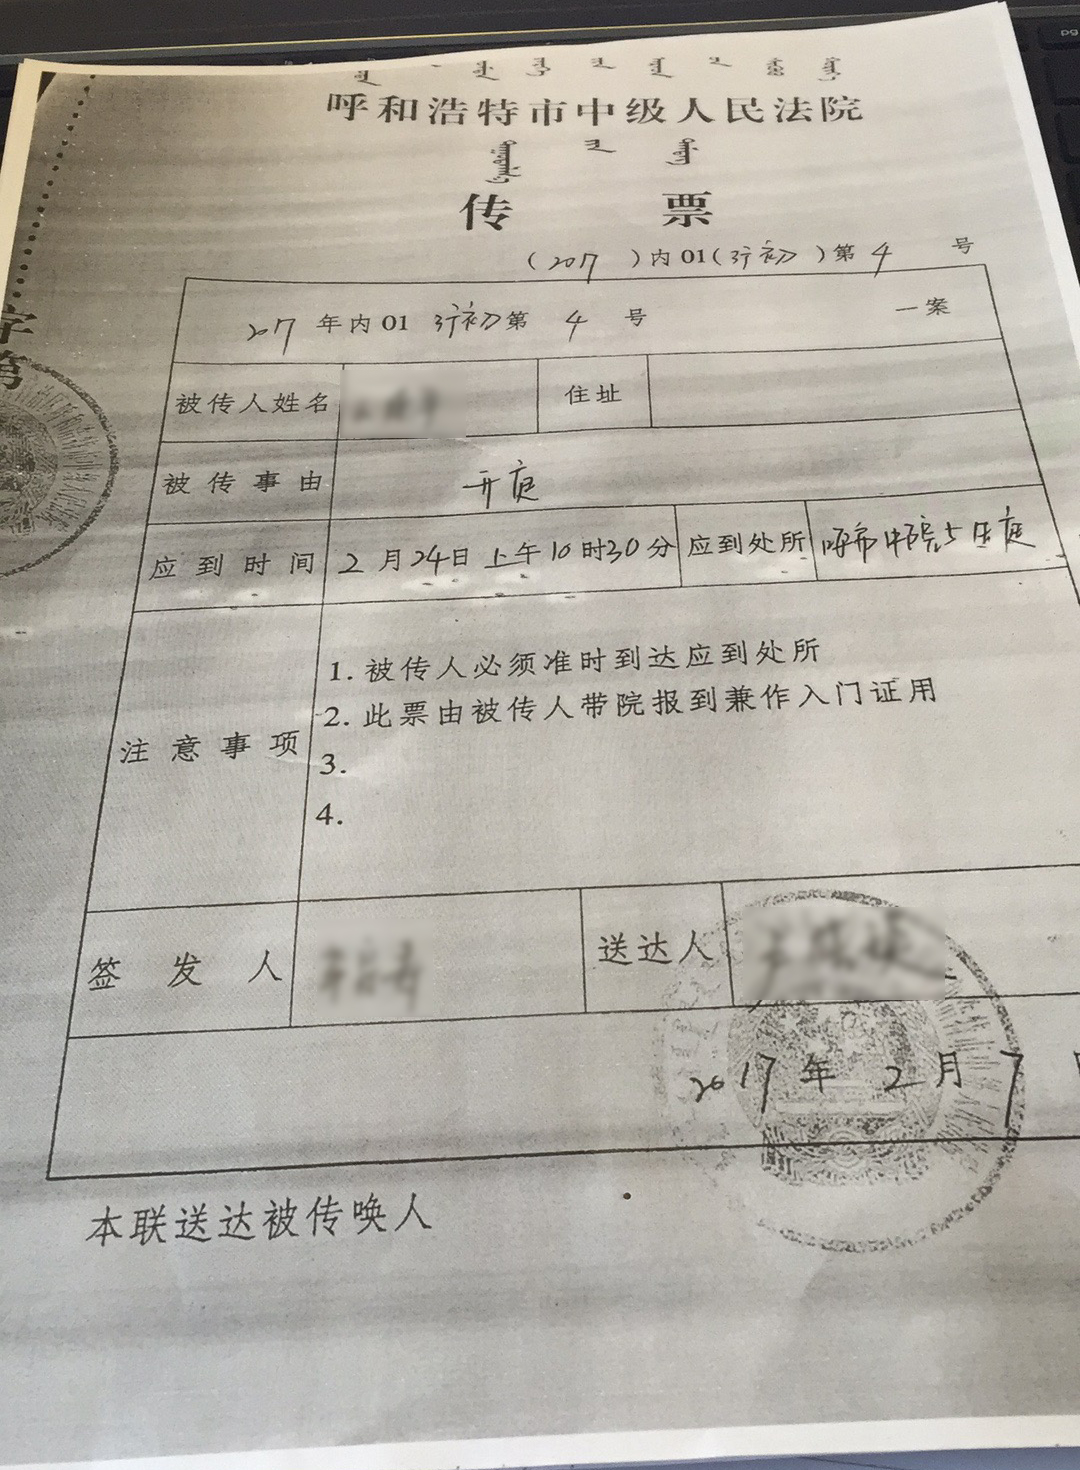 呼和浩特市中级人民法院
传 票
（2017）内01（行初）第4号
2017年内01行初第4号 一案
被传人姓名 住址
被传事由 开庭
应到时间 2月24日上午10时30分 应到处所 呼市中院
注意事项
1. 被传人必须准时到达应到处所
2. 此票由被传人带院报到兼作入门证用
3.
4.
签发人 送达人
2017年2月7日
本联送达被传唤人
字
第